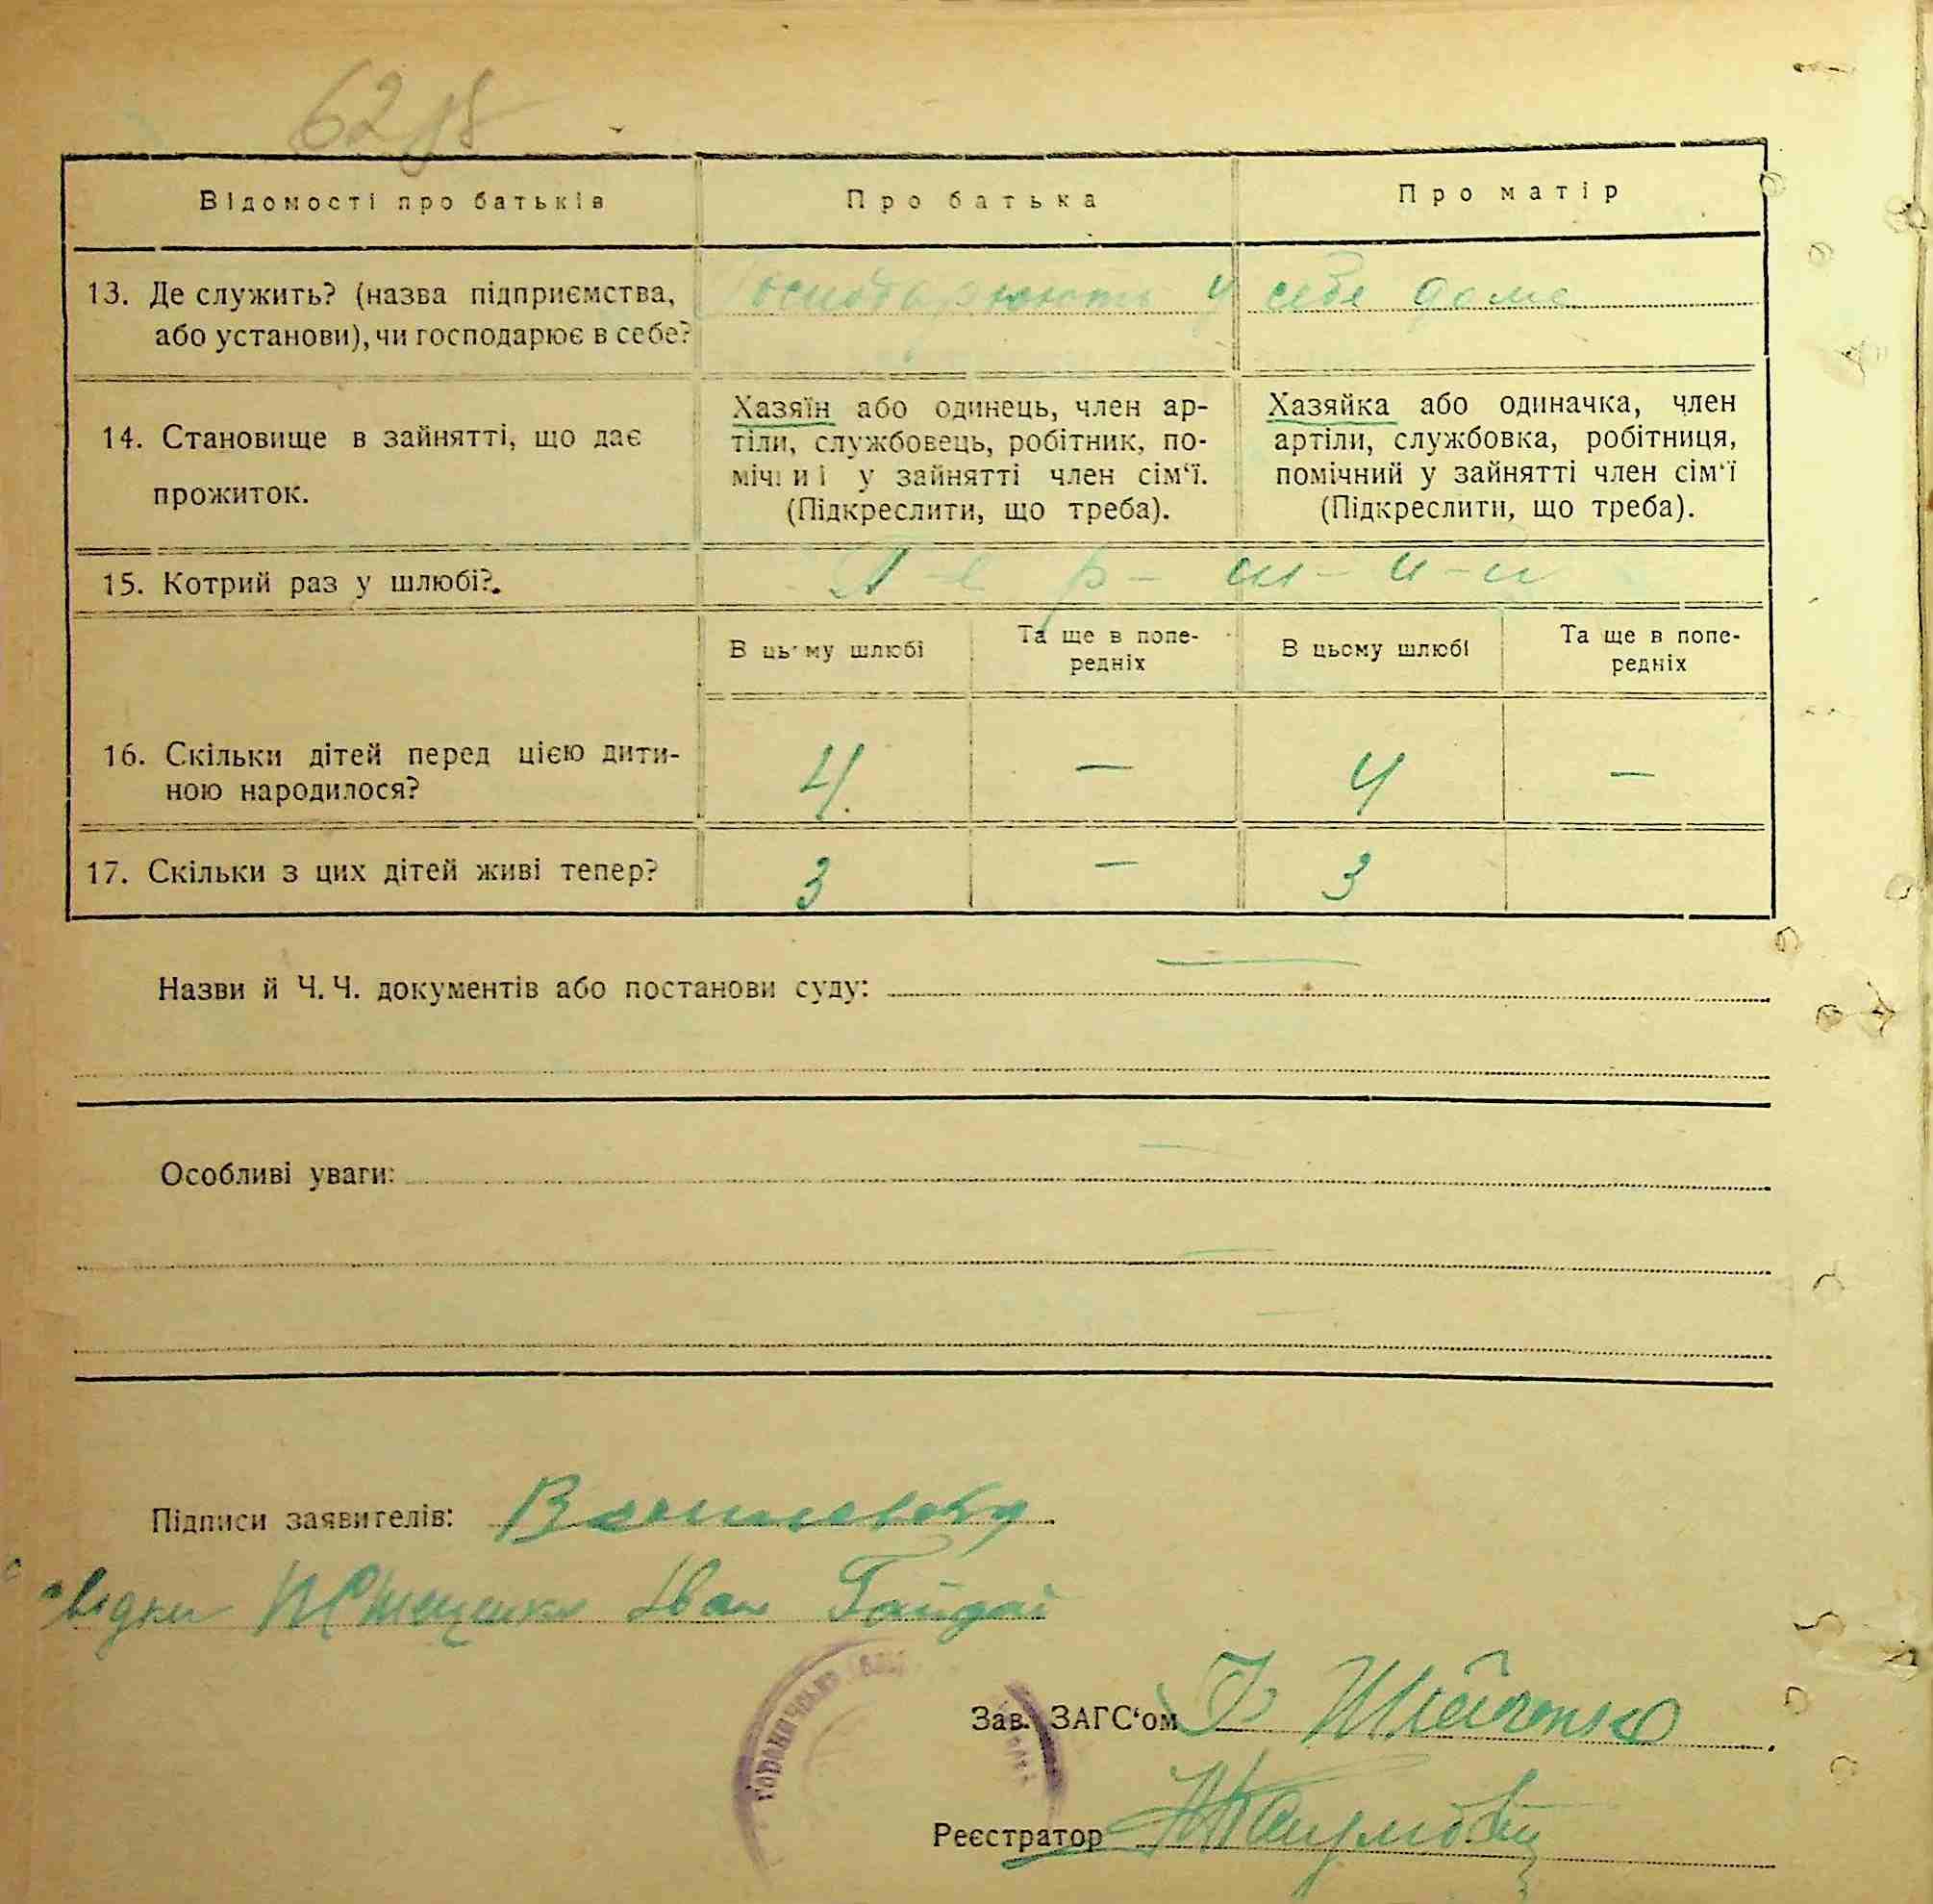 62
Відомості про батьків
Про батька
Про матір
13. Де служить? (назва підприємства,
або установи), чи господарює в себе?
Господарюють у себе дома
14. Становище в зайнятті, що дає
прожиток.
Хазяїн або одинець, член ар-
тіли, службовець, робітник, по-
мічниі у зайнятті член сім‘ї.
(Підкреслити, що треба).
Хазяйка або одиначка, член
артіли, службовка, робітниця,
помічний у зайнятті член сім‘ї
(Підкреслити, що треба).
15. Котрий раз у шлюбі?.
П-е р- ш- и-й
В цьому шлюбі
Та ще в попе-
редніх
В цьому шлюбі
Та ще в попе-
редніх
16. Скільки дітей перед цією дити-
ною народилося?
4. — 4 —
17. Скільки з цих дітей живі тепер?
3 — 3
Назви й Ч. Ч. документів або постанови суду: —
Особливі уваги:
Підписи заявителів:
свідки Іван Гайдай
Зав. ЗАГС‘ом
Реєстратор